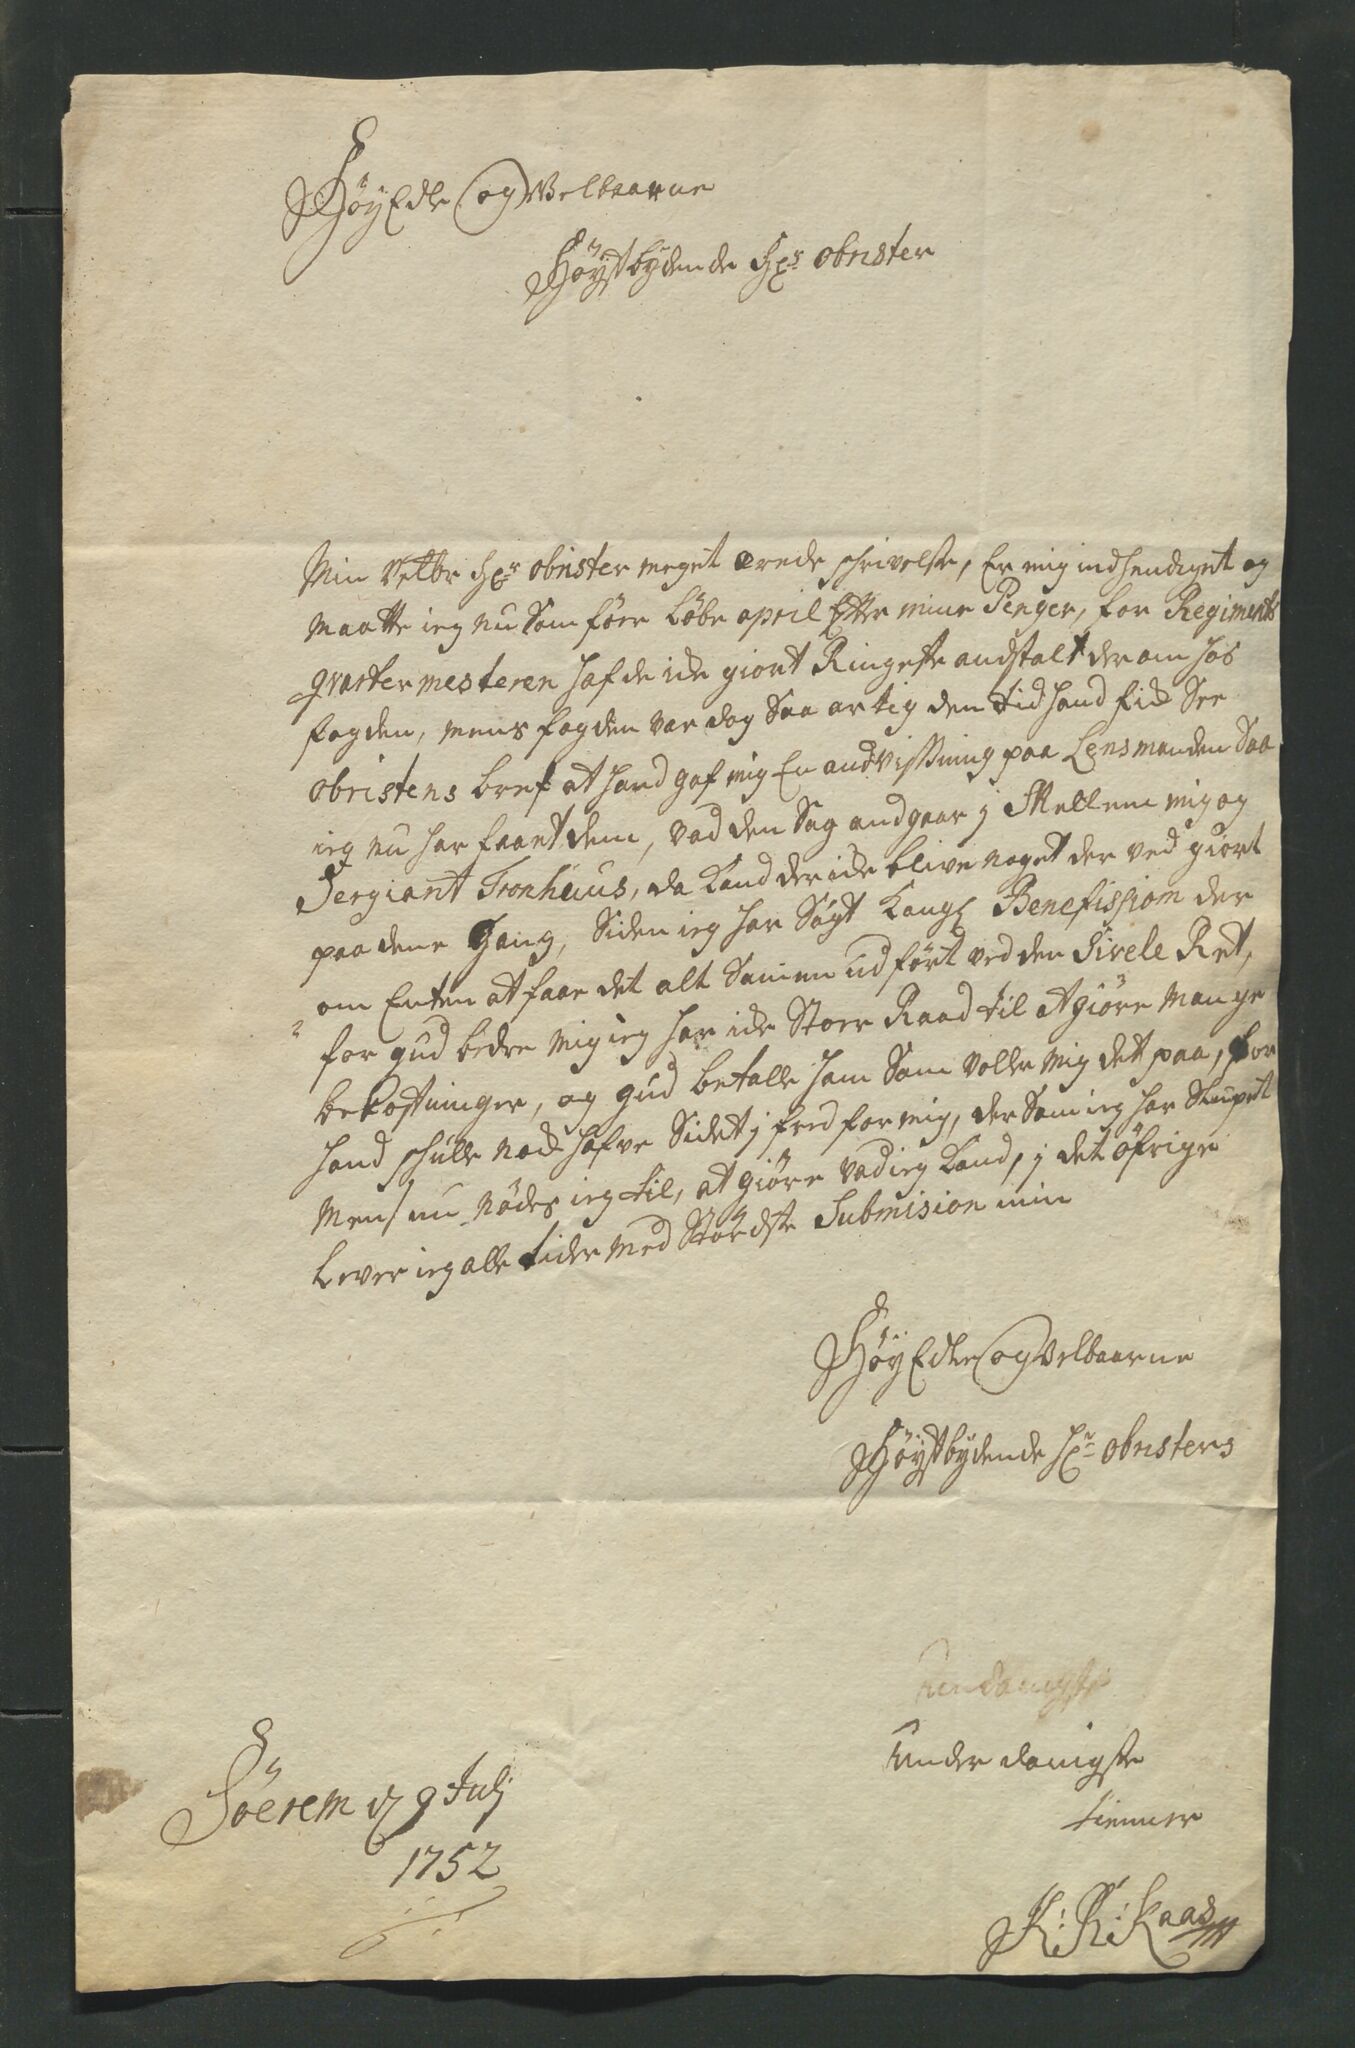 HöyEdle og Velbaarne
Höystbydende Hr obrister
Min Velbr Hr obrister meget ærede schrivelse, Er mig indhendiget og
maatte ieg nu Som före Löbe april Efter mine Penger, for Regiments
qvartermesteren hafde icke giort Ringeste andstalt derom hos
fogden, mens fogden var dog Saa artig den tid hand fick See
obristens bref at hand gaf mig En andvissning paa Lensmanden Saa
ieg nu har faaet dem, vad den Sag andgaar j Mellem mig og
Sergiant Tronhuus, da kand der icke blive noget der ved giort
paa dene Gang, Siden ieg har Søgt Kongl Benefissiom der
om Enten at faae det alt Samen udført ved den Sivele Ret,
for gud bedre mig ieg har icke Stoer Raad til at giöre mange
bekostninger, og gud betalle ham Som volle mig det paa, for
hand schulle nock hafve Sidet j fred for mig, der Som ieg har Sluppet
men nu nödes ieg til, at giöre vad ieg kand, j det öfrige
Lever ieg alle tider med Stördste Submision min
HöyEdle og Velbaarne
Höystbydende Hr obristers
underdanigste
tienner
Söerem d 9 Julj
1752
K: K: Kaas